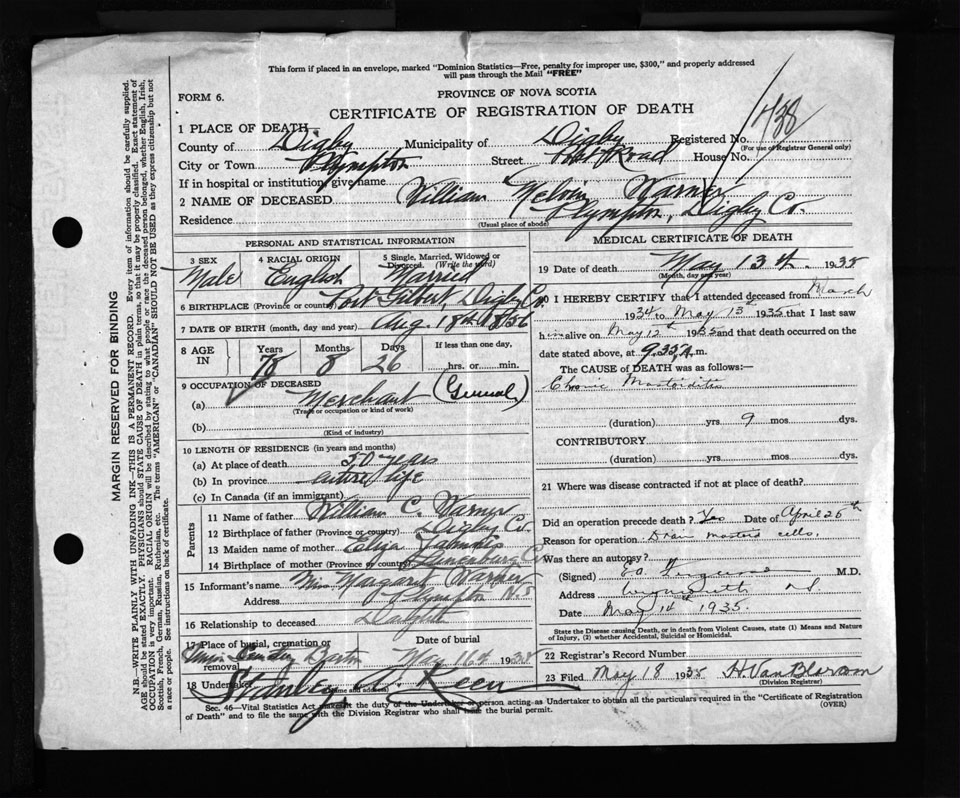 This form if placed in an envelope, marked "Dominion Statistics—Free, penalty for improper use, $300," and properly addressed
will pass through the Mail "FREE"
FORM 6.
PROVINCE OF NOVA SCOTIA
CERTIFICATE OF REGISTRATION OF DEATH
1 PLACE OF DEATH—
County of Digby Municipality of Digby Registered No. 1438
(For use of Registrar General only)
City or Town Plympton Street Road House No.
If in hospital or institution, give name
2 NAME OF DECEASED William Melvin Warner
Residence Plympton, Digby Co.
(Usual place of abode)
PERSONAL AND STATISTICAL INFORMATION
3 SEX Male 4 RACIAL ORIGIN English 5 Single, Married, Widowed or Divorced. (Write the word) Married
6 BIRTHPLACE (Province or country) Port Gilbert, Digby Co.
7 DATE OF BIRTH (month, day and year) Aug. 18th 1856
8 AGE IN Years 78 Months 8 Days 26 If less than one day, hrs. or min.
9 OCCUPATION OF DECEASED
(a) Merchant (General)
(Trade or occupation or kind of work)
(b)
(Kind of industry)
10 LENGTH OF RESIDENCE (in years and months)
(a) At place of death 50 years
(b) In province entire life
(c) In Canada (if an immigrant)
Parents
11 Name of father William C. Warner
12 Birthplace of father (Province or country) Digby Co.
13 Maiden name of mother Eliza
14 Birthplace of mother (Province or country) Lunenburg Co.
15 Informant's name Miss Margaret Warner
Address Plympton N.S
16 Relationship to deceased Daughter
17 Place of burial, cremation or removal Date of burial May 16th 1935
18 Undertaker Stanley N. Keen
(name and address)
MEDICAL CERTIFICATE OF DEATH
19 Date of death May 13th. 1935
(Month, day and year)
20 I HEREBY CERTIFY that I attended deceased from March
1934 to May 13th 1935 that I last saw
him alive on May 12th 1935 and that death occurred on the
date stated above, at 9.35 A. m.
The CAUSE OF DEATH was as follows:—
Chronic Mastoiditis
(duration) yrs 9 mos dys.
CONTRIBUTORY
(duration) yrs. mos. dys.
21 Where was disease contracted if not at place of death?
Did an operation precede death? Yes Date of April 26th
Reason for operation Drain mastoid cells,
Was there an autopsy?
(Signed) M.D.
Address Weymouth N.S.
Date May 14th 1935.
State the Disease causing Death, or in death from Violent Causes, state (1) Means and Nature
of Injury, (2) whether Accidental, Suicidal or Homicidal.
22 Registrar's Record Number
23 Filed May 18 1935 H. Van Blarcom
(Division Registrar)
Sec. 46—Vital Statistics Act makes it the duty of the Undertaker or person acting as Undertaker to obtain all the particulars required in the "Certificate of Registration
of Death" and to file the same with the Division Registrar who shall issue the burial permit.
(OVER)
MARGIN RESERVED FOR BINDING
N.B.—WRITE PLAINLY WITH UNFADING INK—THIS IS A PERMANENT RECORD. Every item of information should be carefully supplied.
AGE should be stated EXACTLY. PHYSICIANS should STATE CAUSE OF DEATH in plain terms, so that it may be properly classified. Exact statement of
OCCUPATION is very important. RACIAL ORIGIN will be described by stating to what people or race the deceased person belonged, whether English, Irish,
Scottish, French, German, Russian, Ruthenian, etc. The terms "AMERICAN" or "CANADIAN" SHOULD NOT BE USED as they express citizenship but not
a race or people. See instructions on back of certificate.